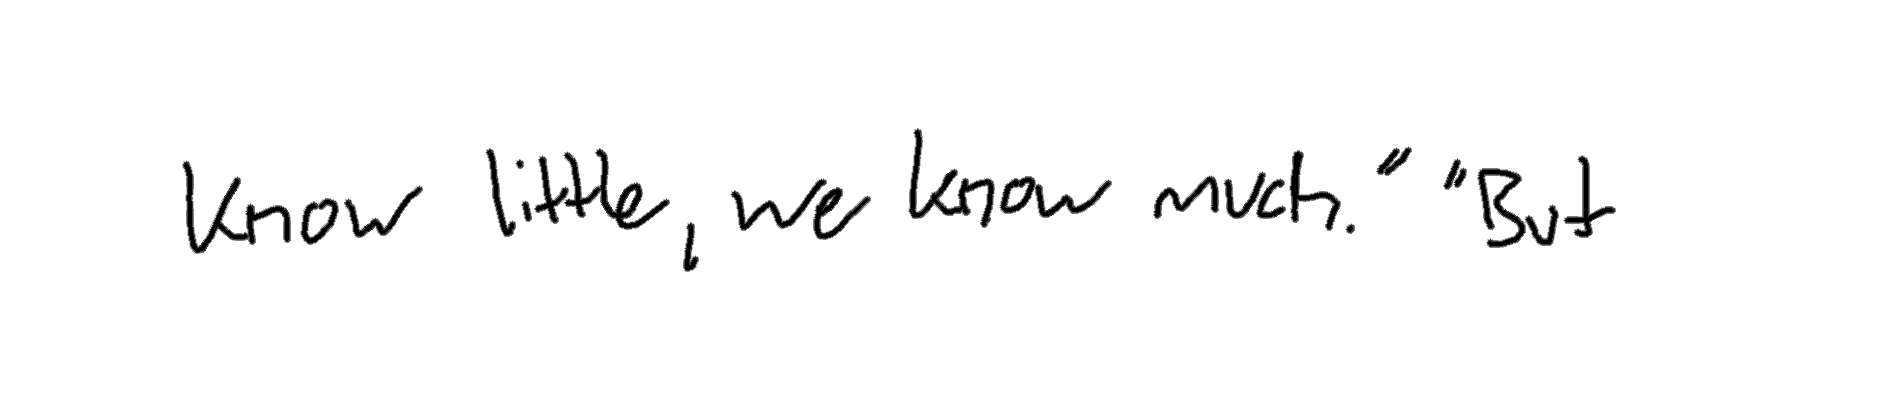 know little, we know much." "But